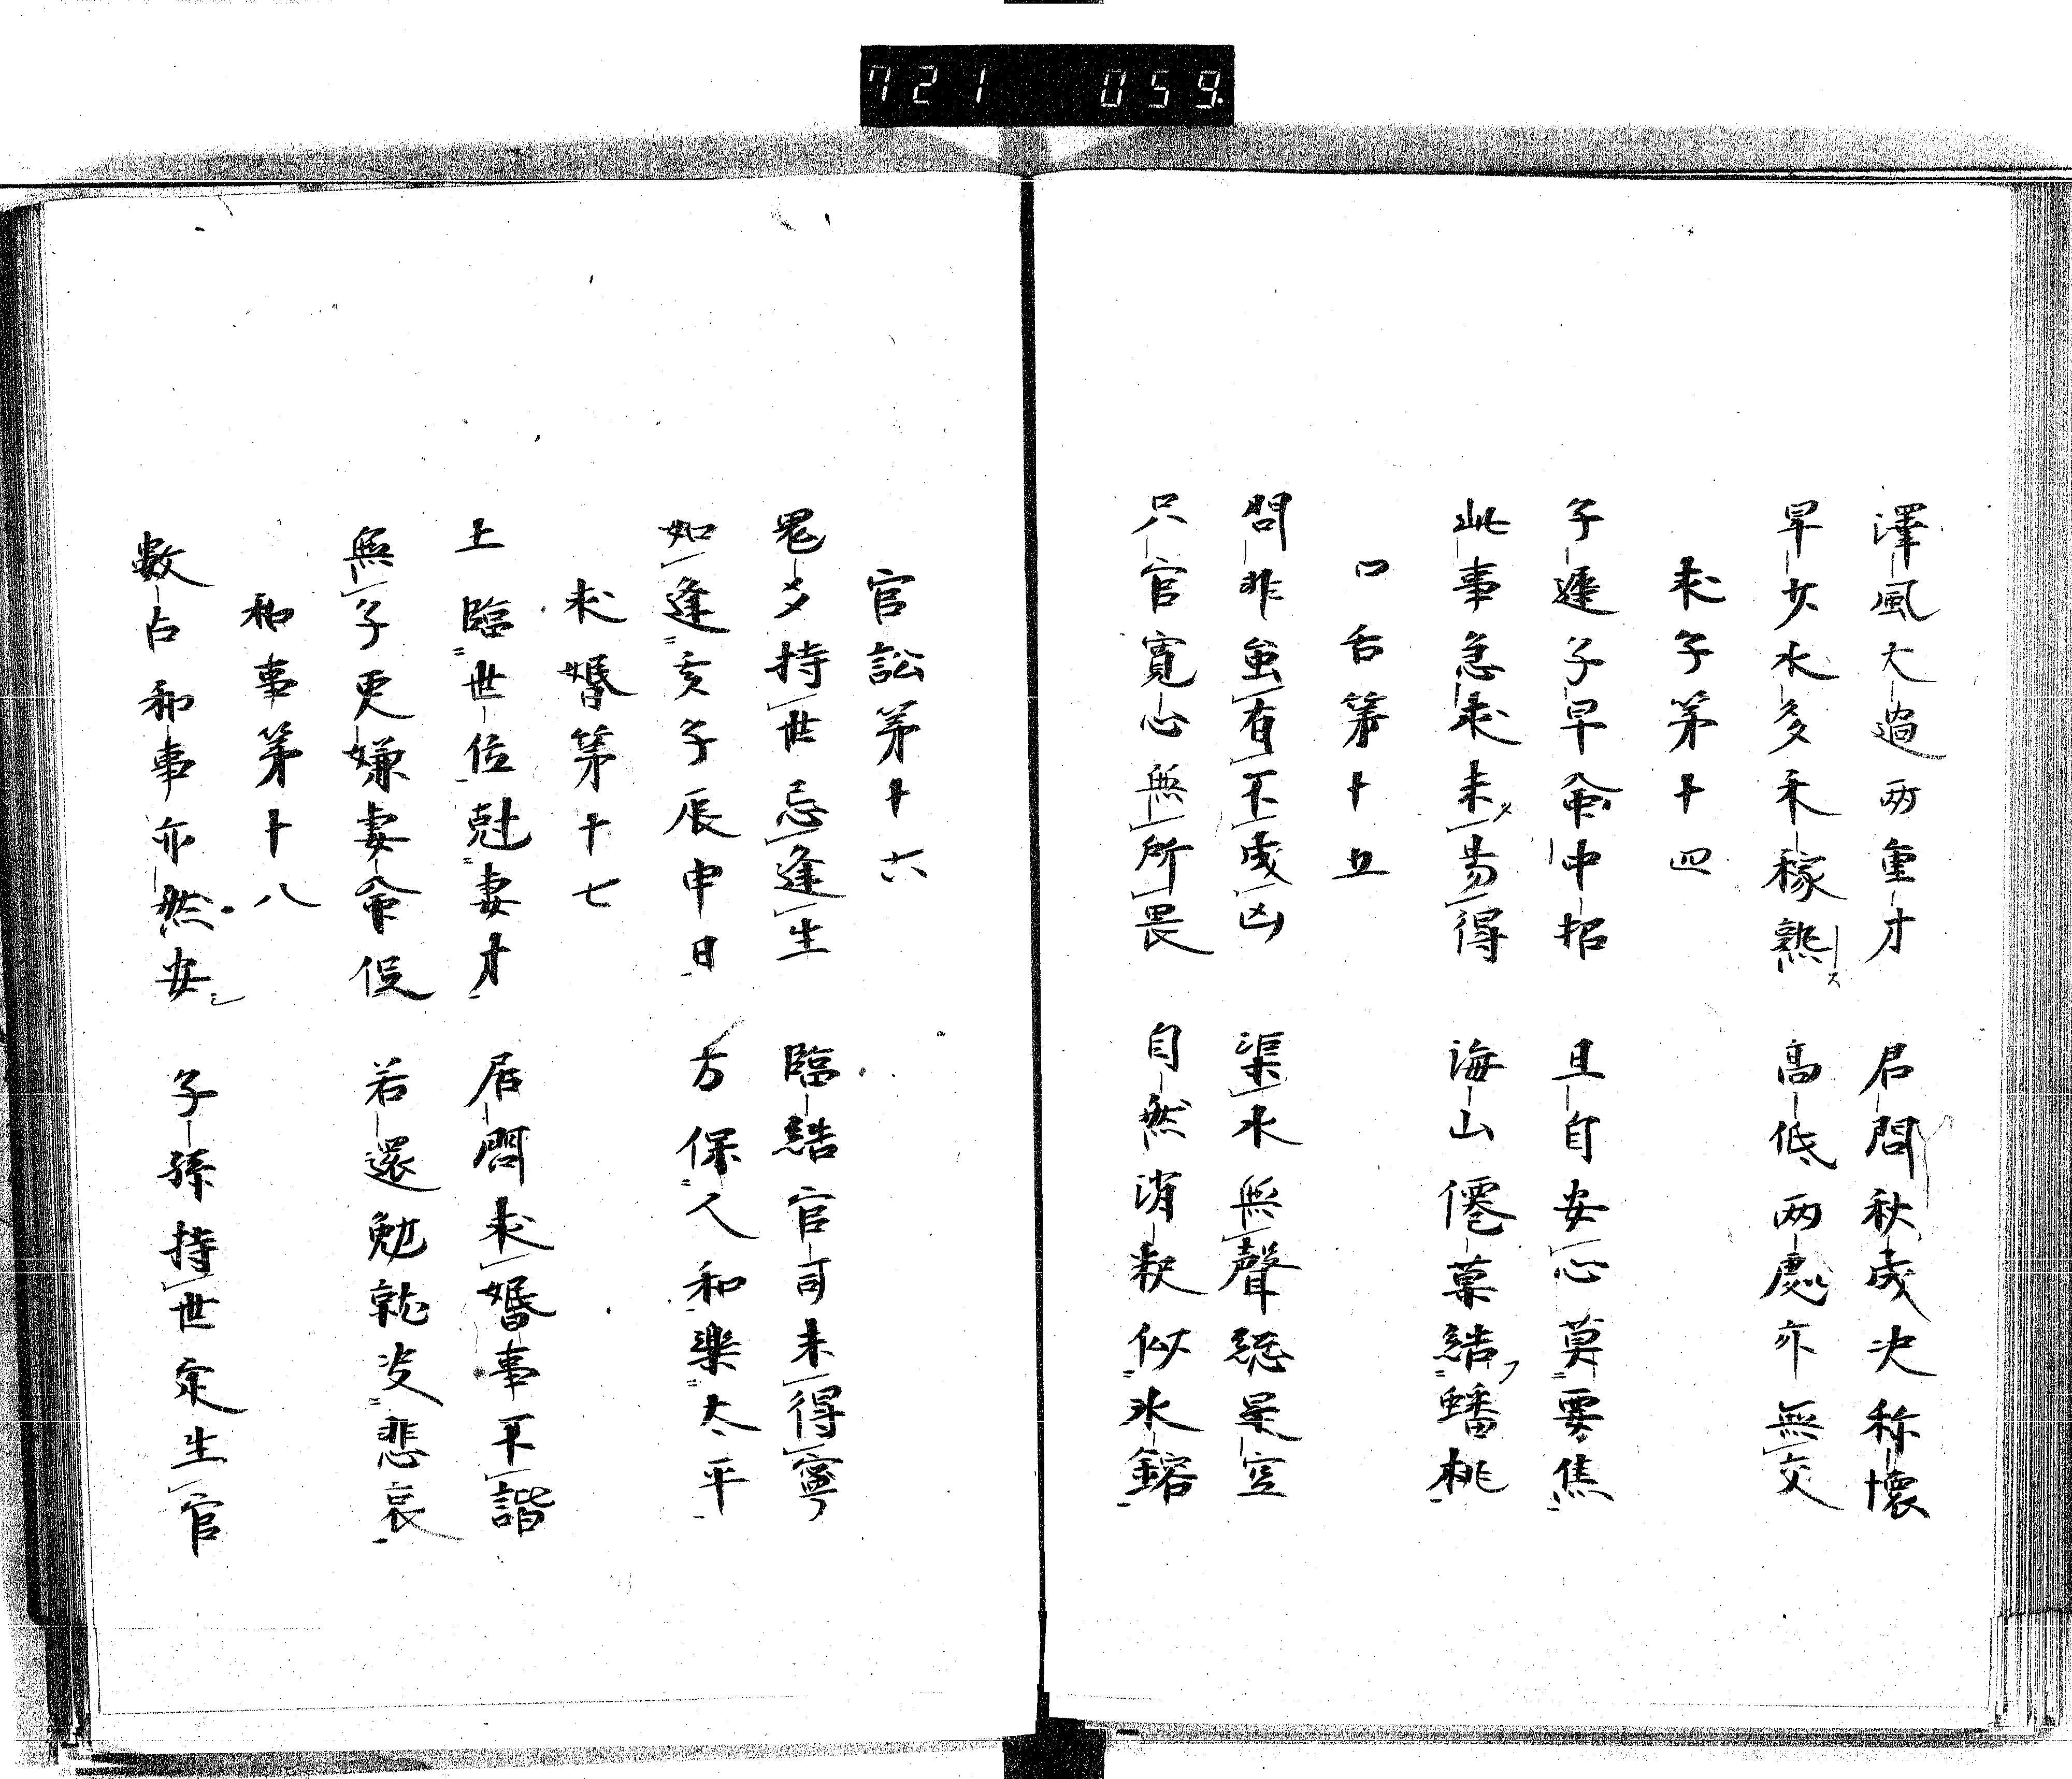 721 059
澤風大過両重才　君問秋成决称懷
早少水多禾稼熟　髙低両處亦無交
求子第十四
子遲子早命中招　且自安心莫要焦
此事急求未易得　海山僊菓結蟠桃
口舌第十五
問非虽有不成凶　渠水無聲總是空
只官寬心無所畏　自然消釈似氷鎔
官訟第十六
鬼多持世忌逢生　臨結官司未得寧
如逢亥子辰申日　方保人和樂太平
求婚第十七
土臨世位尅妻才　居間求婚事不諧
無子更嫌妻命促　若還勉就必悲哀
和事第十八
數占和事亦然安　子孫持世定生官